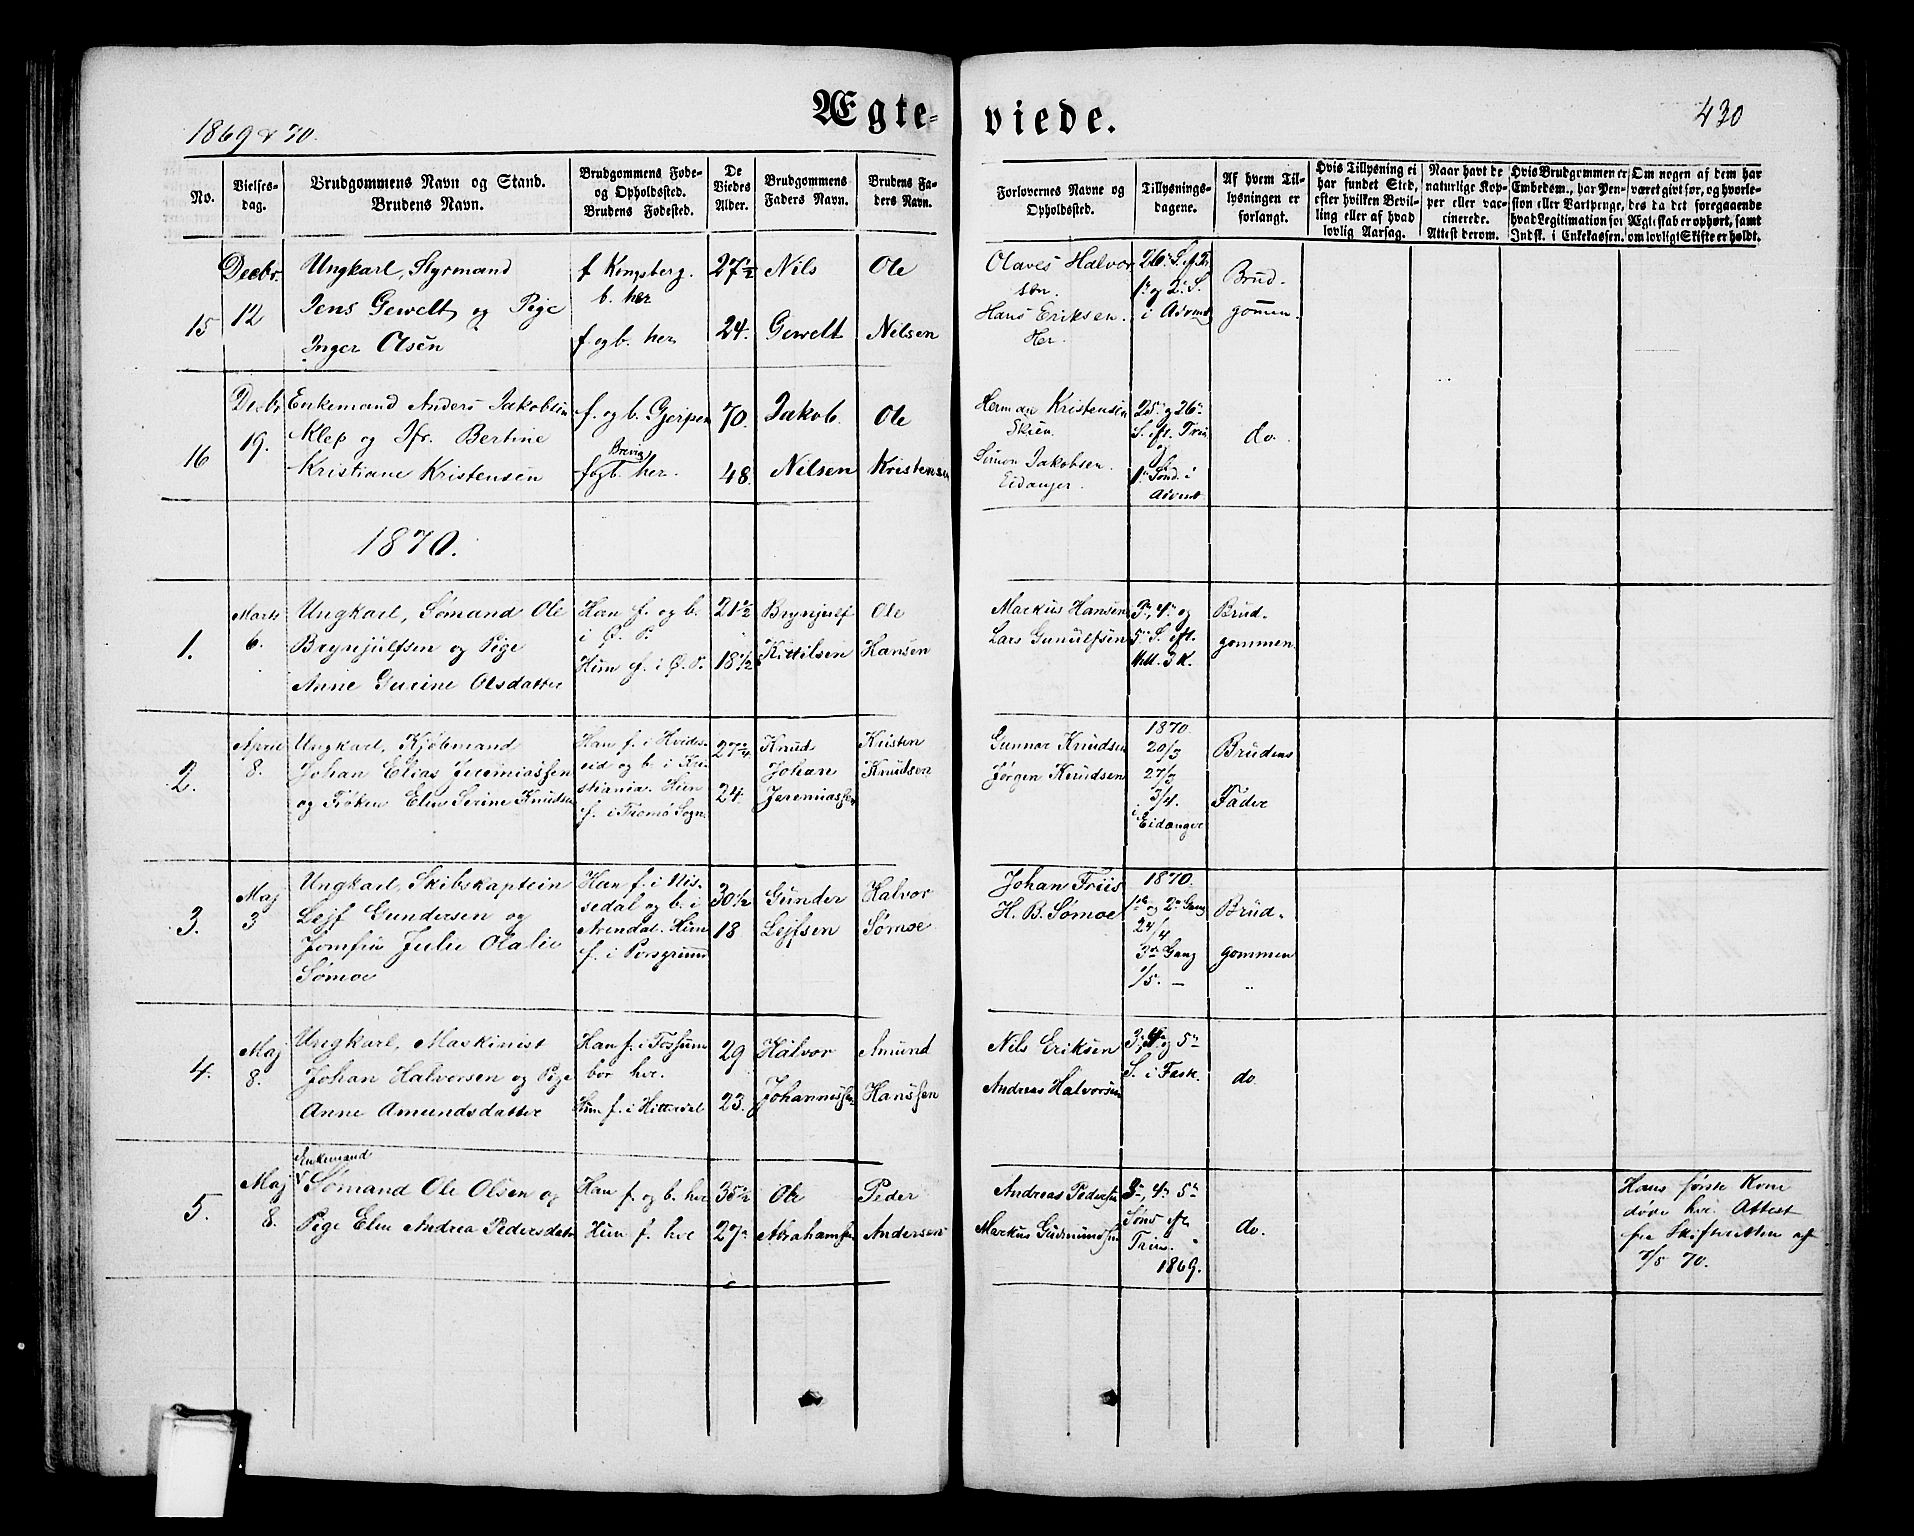 1869 & 70.
Ægte-viede.
430
No.
Vielses-
dag.
Brudgommens Navn og Stand.
Brudens Navn.
Brudgommens Føde-
og Opholdssted.
Brudens Fødested.
De
Viedes
Alder.
Brudgommens
Faders Navn.
Brudens Fa-
ders Navn.
Forlovernes Navne og
Opholdssted.
Tillysnings-
dagene.
Af hvem Til-
lysningen er
forlangt.
Hvis Tillysning ei
har fundet Sted,
efter hvilken Bevil-
ling eller af hvad
lovlig Aarsag.
Naar havt de
naturlige Kop-
per eller vac-
cinerede.
Attest derom.
Hvis Brudgommen er
Embedsm., har Pen-
sion eller Vartpenge,
hvad Legitimation for
Indsk. i Enkekassen.
Om nogen af dem har
været gift før, og hvorle-
des da det foregaaende
Ægteskab er ophørt, samt
om lovligt Skifte er holdt.
15
Decbr.
12
Ungkarl, Styrmand
Jens Gewelt og Pige
Inger Olsen
f Kongsberg.
b. her
f og b. her
27 1/2
24.
Nils
Gewelt
Ole
Nilsen
Olaves Halvor
sen.
Hans Eriksen.
Her.
26. S. ef. Tr.
1n og 2n S.
i Advent
Brud-
gommen.
16
Decbr
19.
Enkemand Anders Jakobsen
Klep og Jfr. Bertine
Kristiane Kristensen
f. og b. Gjerpen
Brevig
f og b. her.
70.
48.
Jakob
Nilsen
Ole
Kristensen
Herman Kristensen
Skien.
Simon Jakobsen.
Eidanger.
25n og 26n
S. eft. Trin
og
1n Sønd. i
Advent.
do.
1870.
1.
Marts
6.
Ungkarl, Sømand Ole
Brynjulfsen og Pige
Anne Gurine Olsdatter
Han f. og b.
i Ø. P.
Hun f. i Ø. P.
21 1/2
18 1/2
Brynjulf
Kittilsen
Ole
Hansen
Markus Hansen
Lars Gunulfsen
3n, 4n og
5n S. eft.
H. 3 K.
Brud-
gommen
2.
April
8.
Ungkarl, Kjøbmand
Johan Elias Jeremiassen
og Frøken Elen Serine Knudsen
Han f. i Hvides-
eid og b. i Kri-
stiania. Hun
f. i Tromø Sogn.
27 3/4
24.
Knud
Johan
Jeremiassen
Kristen
Knudsen
Gunnar Knudsen
Jørgen Knudsen
1870.
20/3
27/3
3/4.
i Eidanger
Brudens
Fader
3.
Maj
3
Ungkarl, Skibskaptein
Lejf Gundersen og
Jomfru Julie Olalie
Sømoe
Han f. i Nis-
sedal og b. i
Arendal. Hun
f. i Porsgrund
30 1/2
18
Gunder
Lejfsen
Halvor
Sømoe
Johan Friis
H. B. Sømoe
1870.
1ste og 2n Gang
24/4
3die Gang
1/5. —
Brud-
gommen
4.
Maj
8.
Ungkarl, Maskinist
Johan Halvorsen og Pige
Anne Amundsdatter
Han f. i Fossum
bor her.
Hun f. i Hitterdal
29
23.
Halvor
Johannessen
Amund
Hanssen
Nils Eriksen
Andreas Halvorsen
3n, 4n og 5n
S. i Fast.
do.
5.
Maj
8.
Enkemand
Sømand Ole Olsen og
Pige Elen Andrea Pedersdatter
Han f. og b. her
Hun f. her
35 1/2
27
Ole
Abrahamsen
Peder
Andersen
Andreas Pedersen
Markus Gudmundsen
3n, 4n 5n
Sønd eft.
Trin.
1869.
do.
Hans første Kone
døde her. Attest
fra Skifteretten af
7/5 70.